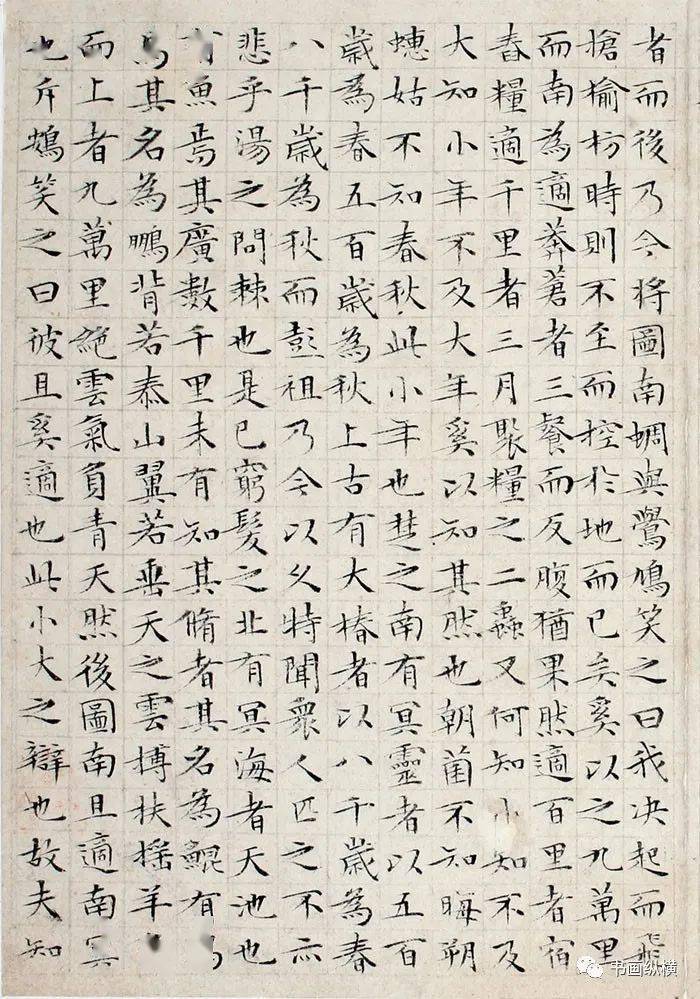 者而後乃今將圖南蜩與鷽鳩笑之曰我决起而飛
搶榆枋時則不至而控於地而已矣奚以之九萬里
而南為適莽蒼者三餐而反腹猶果然適百里者宿
舂糧適千里者三月聚糧之二蟲又何知小知不及
大知小年不及大年奚以知其然也朝菌不知晦朔
蟪蛄不知春秋此小年也楚之南有冥靈者以五百
歲為春五百歲為秋上古有大椿者以八千歲為春
八千歲為秋而彭祖乃今以久特聞衆人匹之不亦
悲乎湯之問棘也是已窮髮之北有冥海者天池也
有魚焉其廣數千里未有知其脩者其名為鯤有
焉其名為鵬背若泰山翼若垂天之雲搏扶搖羊
而上者九萬里絕雲氣負青天然後圖南且適南冥
也斥鴳笑之曰彼且奚適也此小大之辯也故夫知
书画纵横